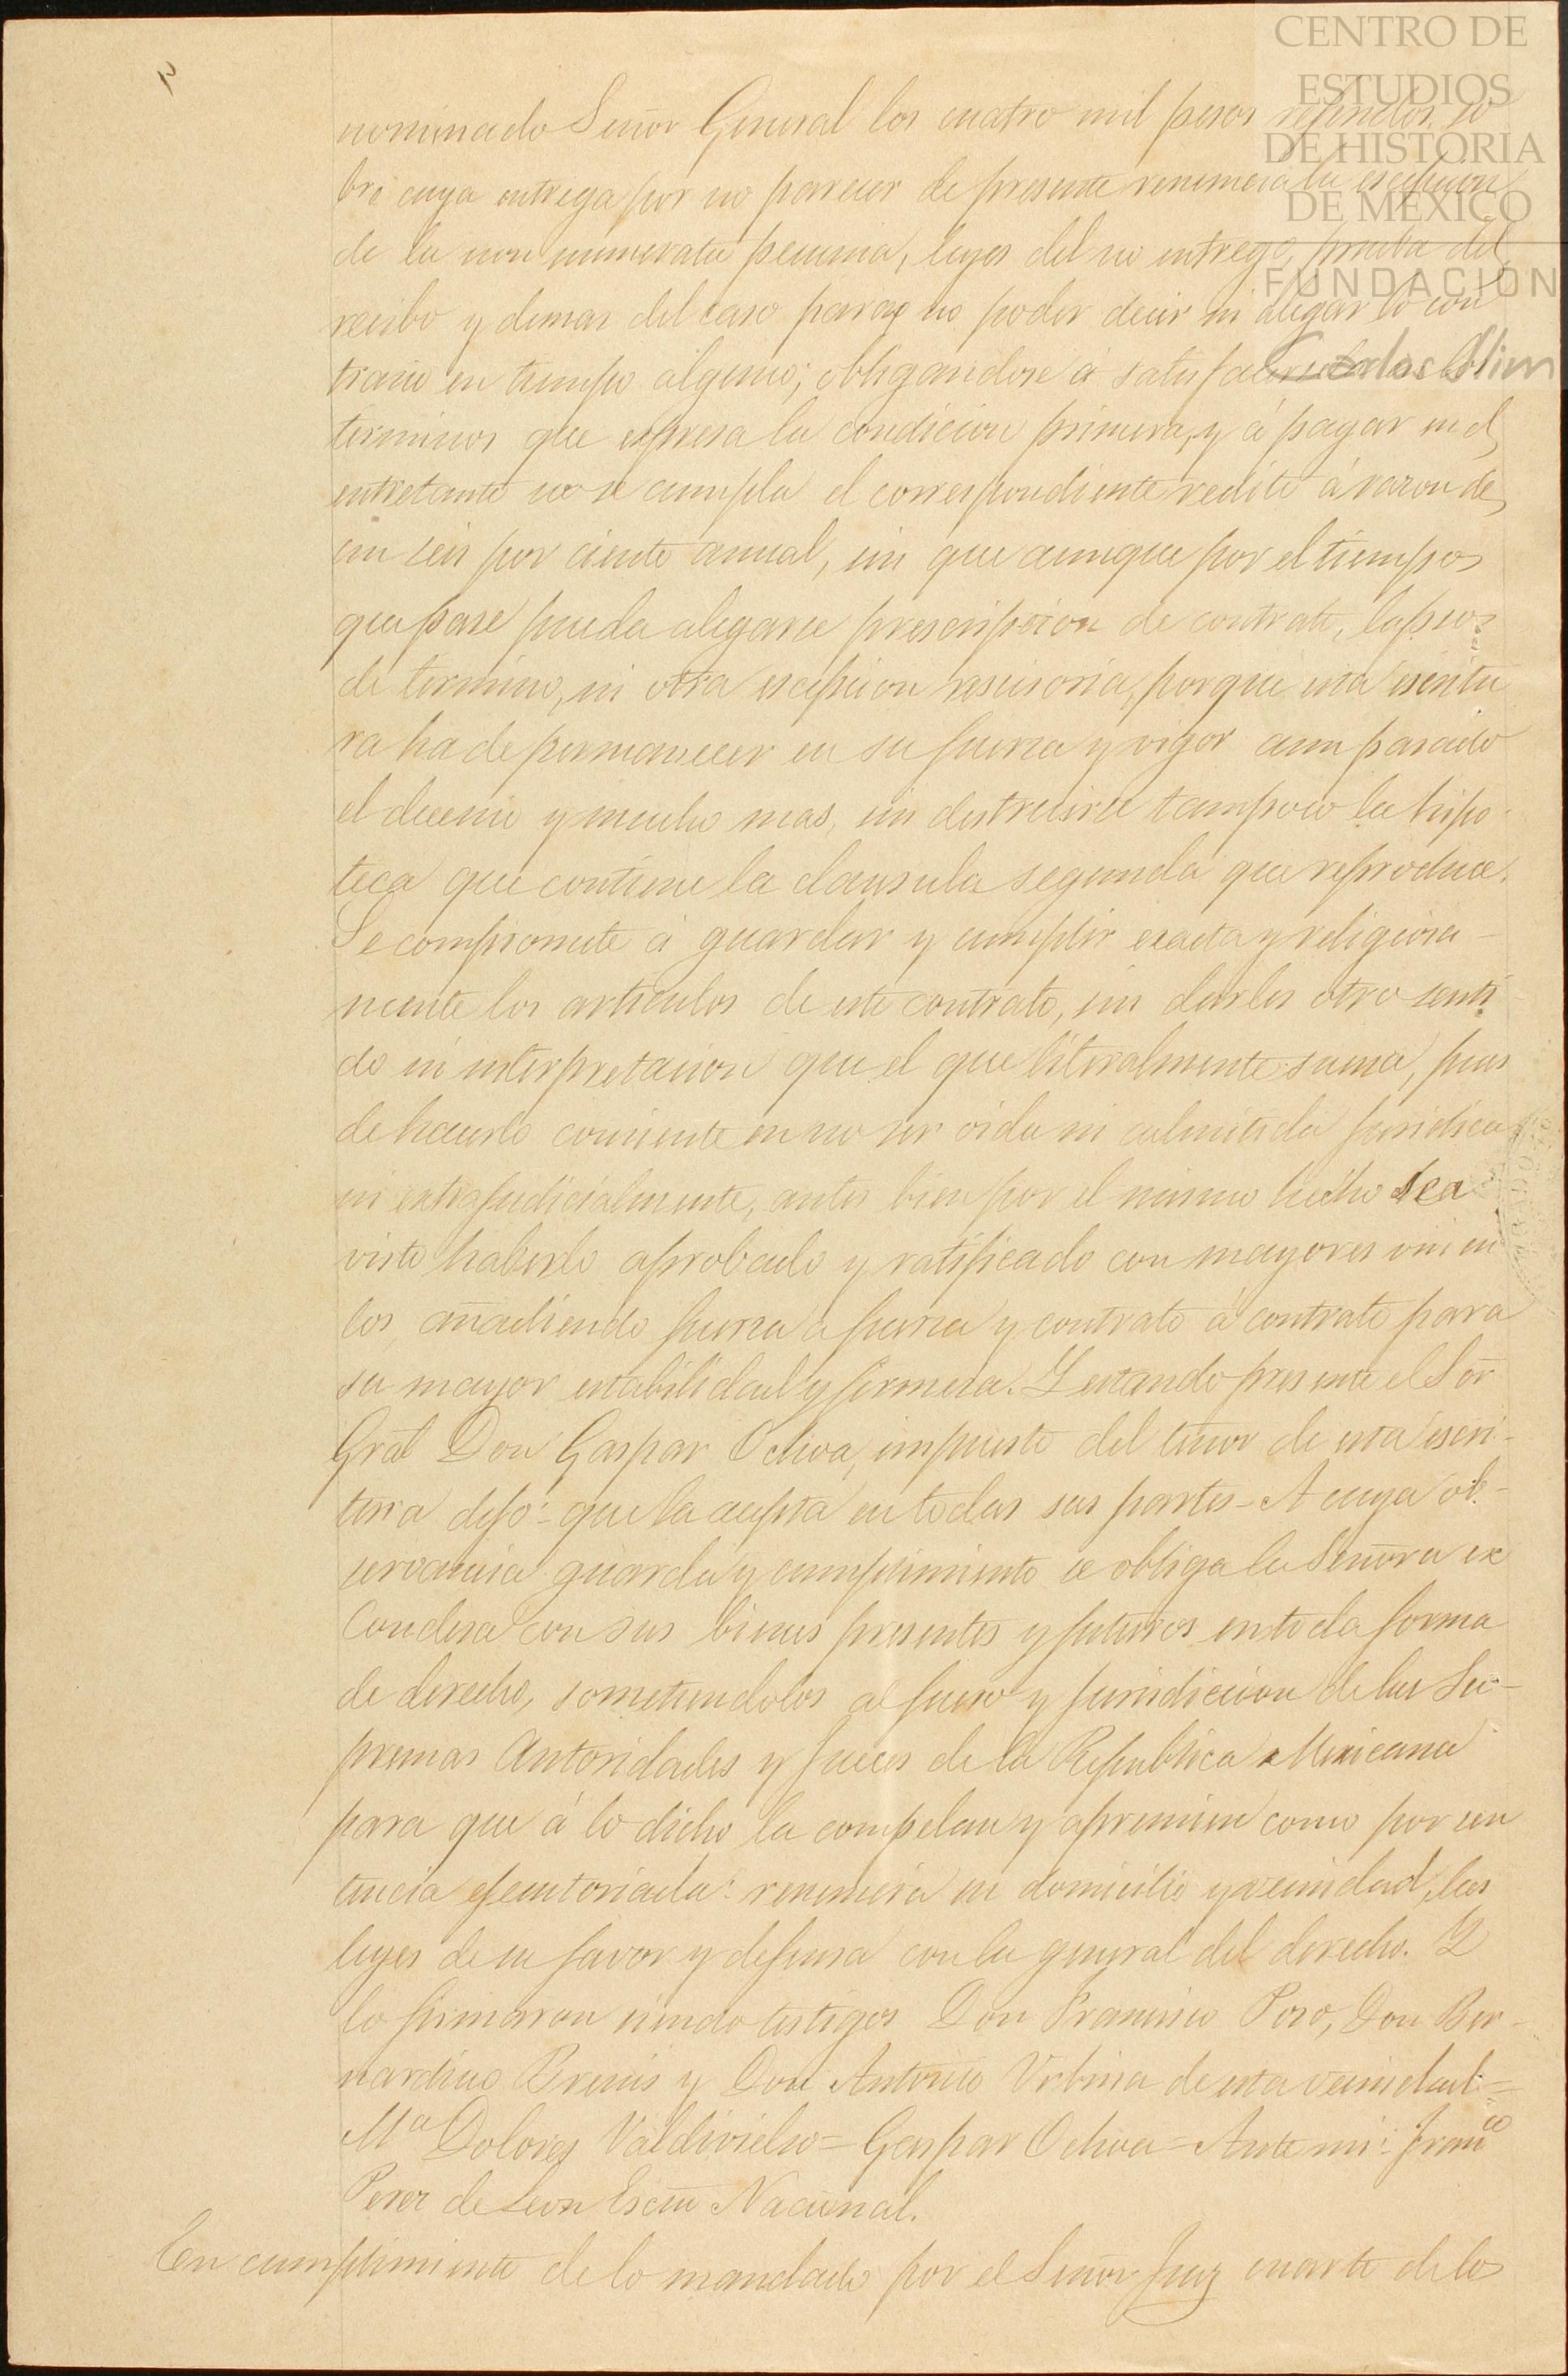 CENTRO DE
ESTUDIOS
DE HISTORIA
DE MEXICO
FUNDACIÓN
Carlos Slim
nominado Señor General los cuatro mil pesos referidos, so
bre cuya entrega por no parecer de presente renuncia la escepcion
de la non numerata pecunia, leyes del no entrego, prueba del
recibo y demas del caso para no poder decir ni alegar lo con
trario en tiempo alguno; obligandose á satisfacerlos en los
terminos que espresa la condicion primera, y á pagar en el
entretanto no se cumpla el correspondiente redito á razon de
un seis por ciento anual, sin que aunque por el tiempo
que pase pueda alegarse prescripcion de contrato, lapso
de termino, ni otra escepcion rescisoria, porque esta escritu
ra ha de permanecer en su fuerza y vigor aun pasado
el decenio y mucho mas, sin destruirse tampoco la hipo-
teca que contiene la clausula segunda que reproduce.
Se compromete á guardar y cumplir exacta y religiosa-
mente los articulos de este contrato, sin darles otro senti
do ni interpretacion que el que literalmente suena, pues
de hacerlo consiente en no ser oida ni admitida juridica
ni extrajudicialmente, antes bien por el mismo hecho sea
visto haberlo aprobado y ratificado con mayores vincu
los, añadiendo fuerza á fuerza y contrato á contrato para
su mayor estabilidad y firmeza. Y estando presente el Sor
Gral Don Gaspar Ochoa, impuesto del tenor de esta escri-
tura dijo: que la acepta en todas sus partes - A cuya ob-
servancia guarda y cumplimiento se obliga la Señora ex
Condesa con sus bienes presentes y futuros en toda forma
de derecho, sometiendolos al fuero y jurisdiccion de las Su-
premas Autoridades y Jueces de la Republica Mexicana
para que á lo dicho la compelan y apremien como por sen
tencia ejecutoriada: renuncia su domicilio y vecindad, las
leyes de su favor y defensa con la general del derecho. Y
lo firmaron siendo testigos Don Francisco Poso, Don Ber-
nardino Brenis y Don Antonio Urbina de esta vecindad =
Ma Dolores Valdivielso = Gaspar Ochoa = Ante mi: Franco
Perez de Leon Escno Nacional.
En cumplimiento de lo mandado por el Señor Juez cuarto de lo